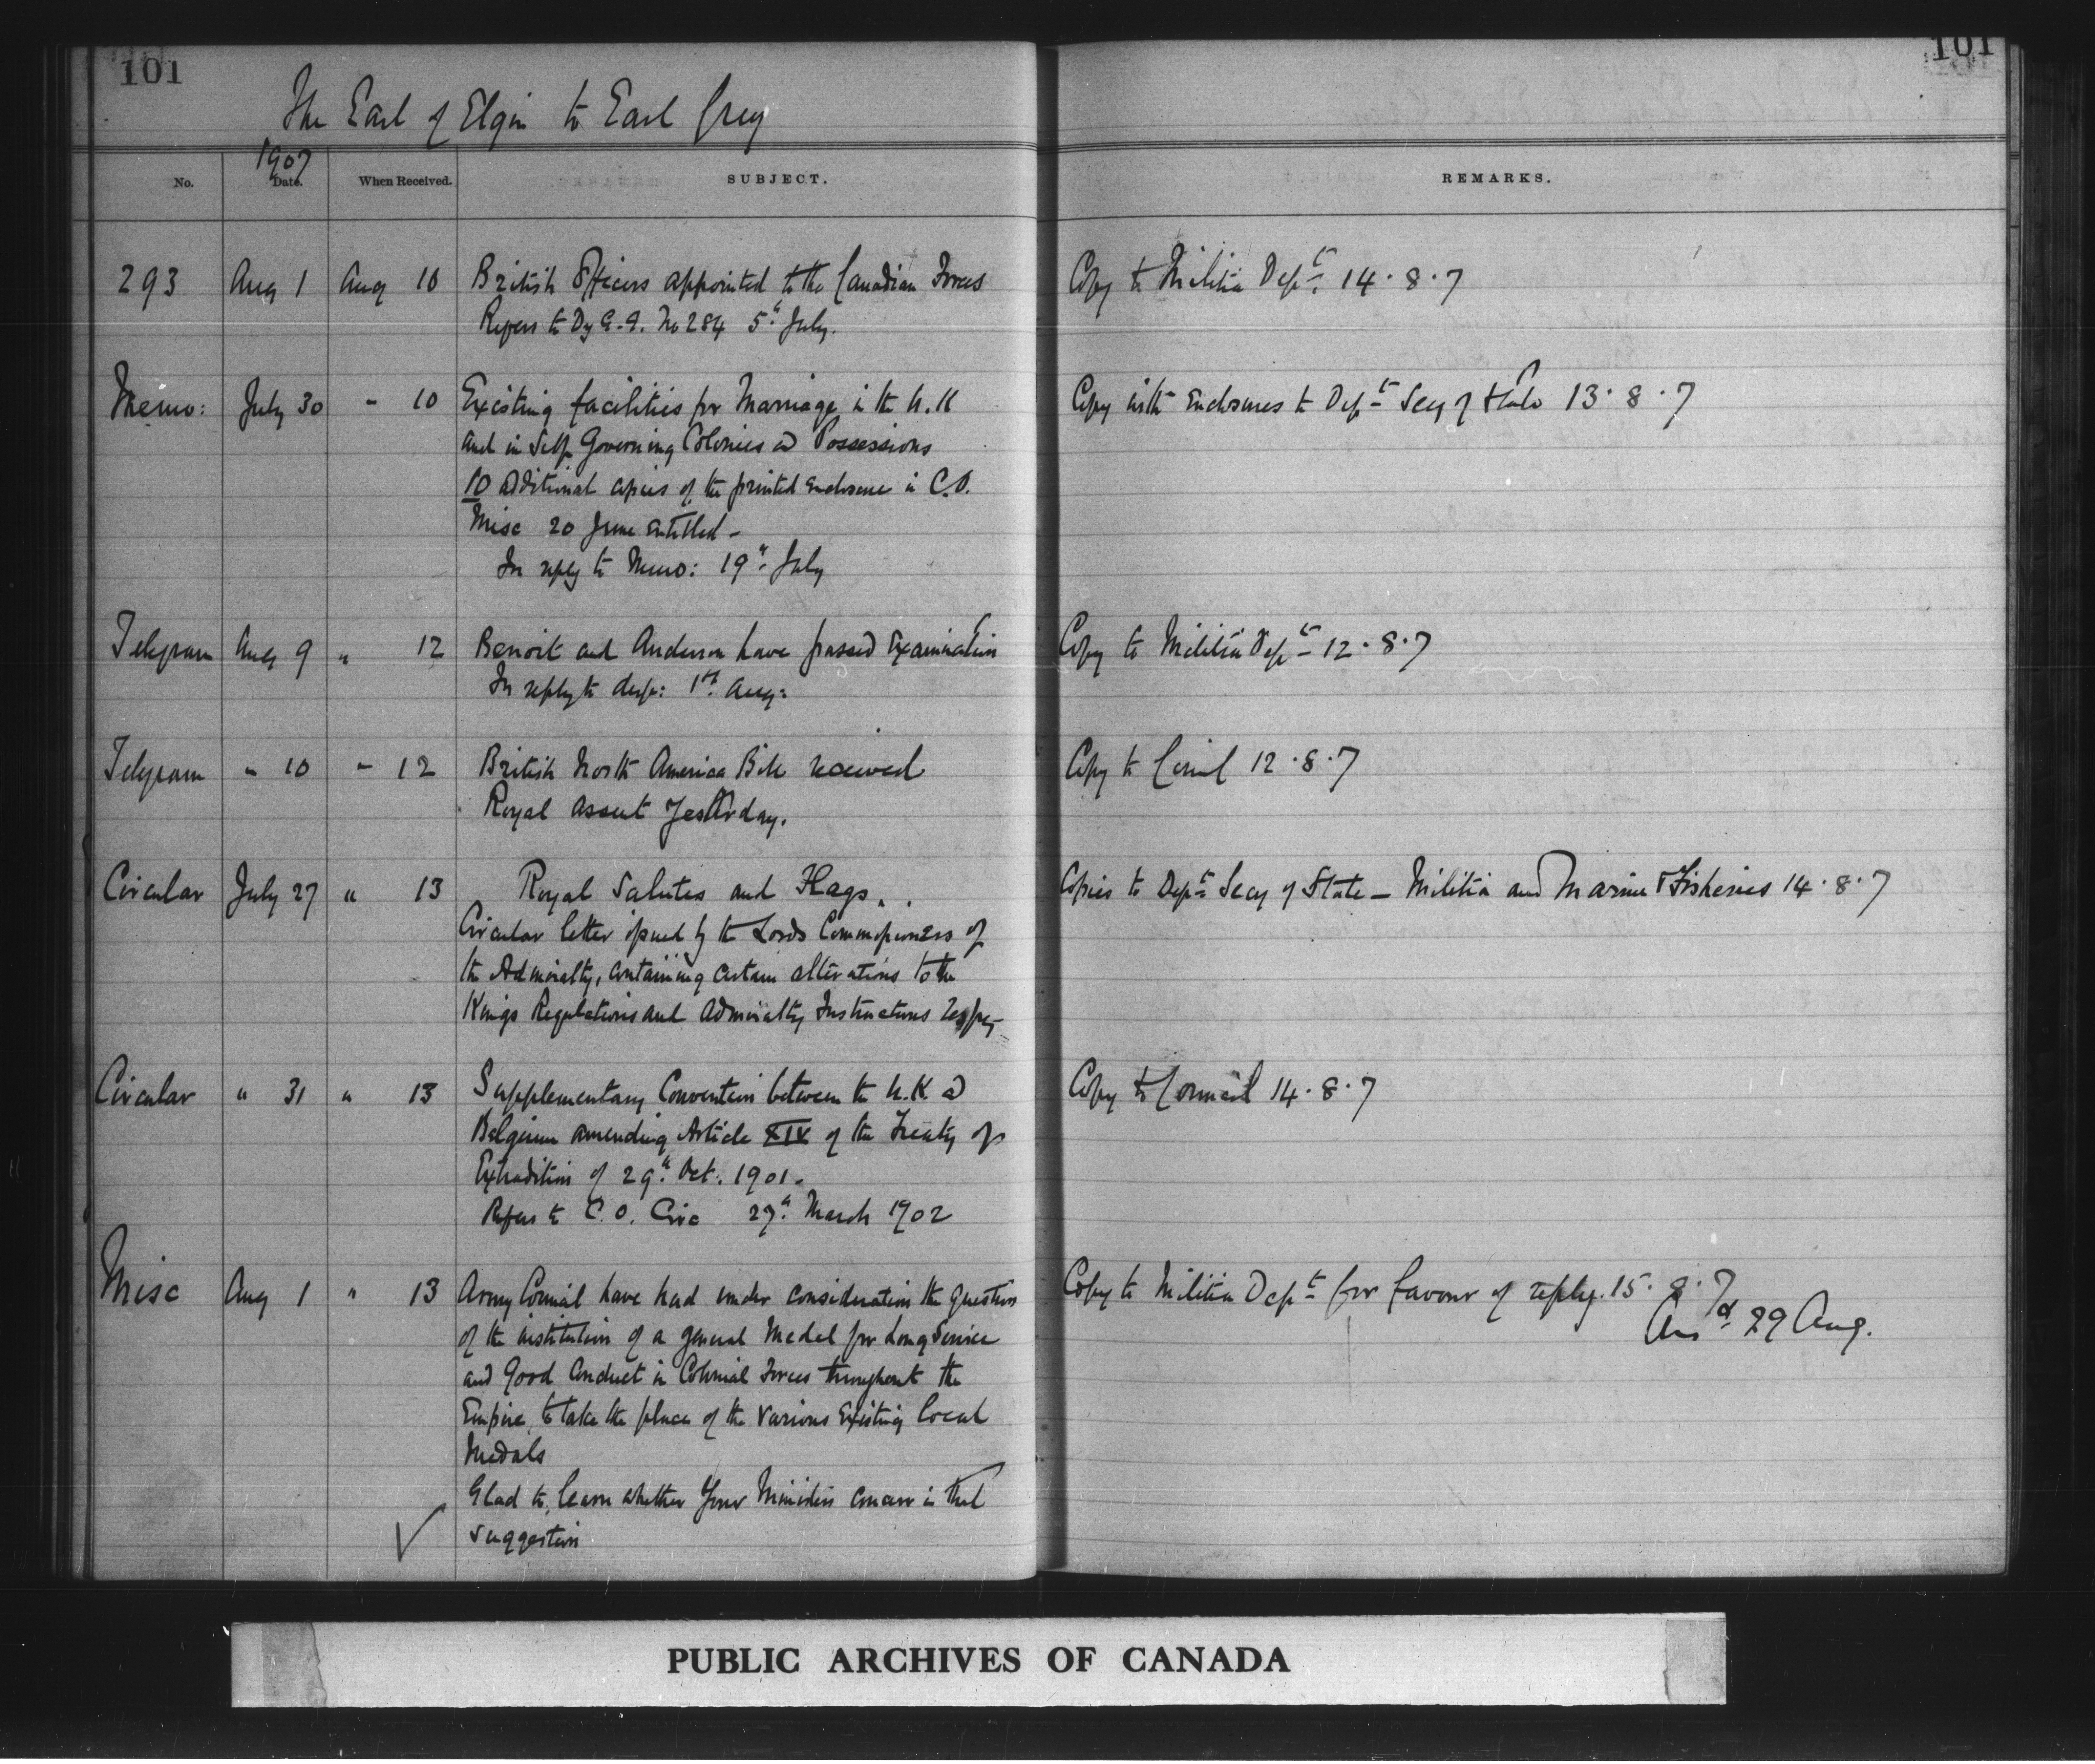 101
101
The Earl of Elgin to Earl Grey
1907
No. Date. When Received. SUBJECT. REMARKS.
293 Aug 1 Aug 10 British Officers appointed to the Canadian Forces Copy to Militia Dept. 14.8.7
Refers to Dy G.G. No 284 5th July.
Memo: July 30 " 10 Existing facilities for Marriage in the U.K Copy with Enclosures to Dept Secy of State 13.8.7
and in Self Governing Colonies and Possessions
10 additional copies of the printed enclosure in C.O.
Misc 20 June entitled -
In reply to Memo: 19th July
Telegram Aug 9 " 12 Benoit and Anderson have passed Examination Copy to Militia Dept 12.8.7
In reply to desp: 1st Aug:
Telegram " 10 " 12 British North America Bill received Copy to Council 12.8.7
Royal assent Yesterday.
Circular July 27 " 13 Royal Salutes and Flags. Copies to Dept Secy of State - Militia and Marine & Fisheries 14.8.7
Circular letter issued by the Lords Commissioners of
the Admiralty, containing certain alterations to the
Kings Regulations and Admiralty Instructions respg
Circular " 31 " 13 Supplementary Convention between the U.K. and Copy to Council 14.8.7
Belgium amending Article XIV of the Treaty of
Extradition of 29th Oct. 1901.
Refers to C.O. Circ 27th March 1902
Misc Aug 1 " 13 Army Council have had under consideration the question Copy to Militia Dept for favour of reply. 15.8.7
Ansd 29 Aug.
of the institution of a general Medal for Long Service
and Good Conduct in Colonial Forces throughout the
Empire, to take the place of the various Existing local
Medals
Glad to learn whether Your Ministers concur in that
suggestion
PUBLIC ARCHIVES OF CANADA